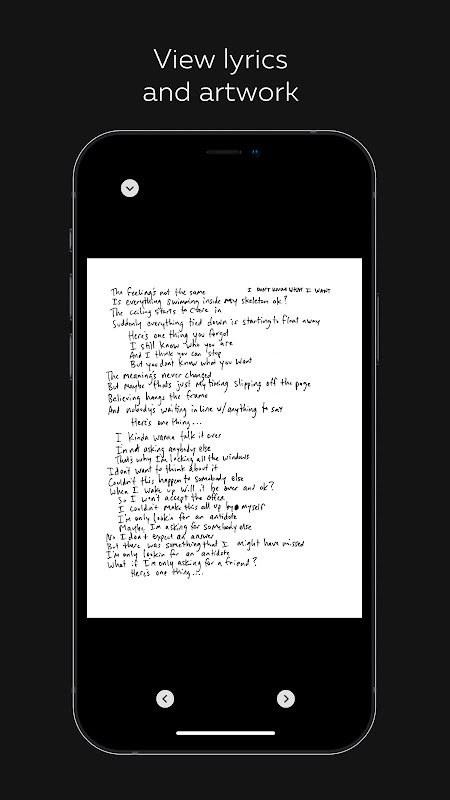 View lyrics
and artwork
The feeling's not the same
I DON'T KNOW WHAT I WANT
Is everything swimming inside my skeleton ok?
The ceiling starts to close in
Suddenly everything tied down is starting to float away
Here's one thing you forgot
I still know who you are
And I think you can stop
But you dont know what you want
The meanings never changed
But maybe thats just my timing slipping off the page
Believing hangs the frame
And nobody's waiting in line w/anything to say
Here's one thing...
I kinda wanna talk it over
I'm not asking anybody else
That's why I'm locking all the windows
I dont want to think about it
Couldn't this happen to somebody else
When I wake up will it be over and ok?
So I won't accept the offer
I couldn't make this all up by myself
I'm only lookin for an antidote
Maybe I'm asking for somebody else
No I don't expect an answer
But there was something that I might have missed
I'm only lookin for an antidote
What if I'm only asking for a friend?
Here's one thing...